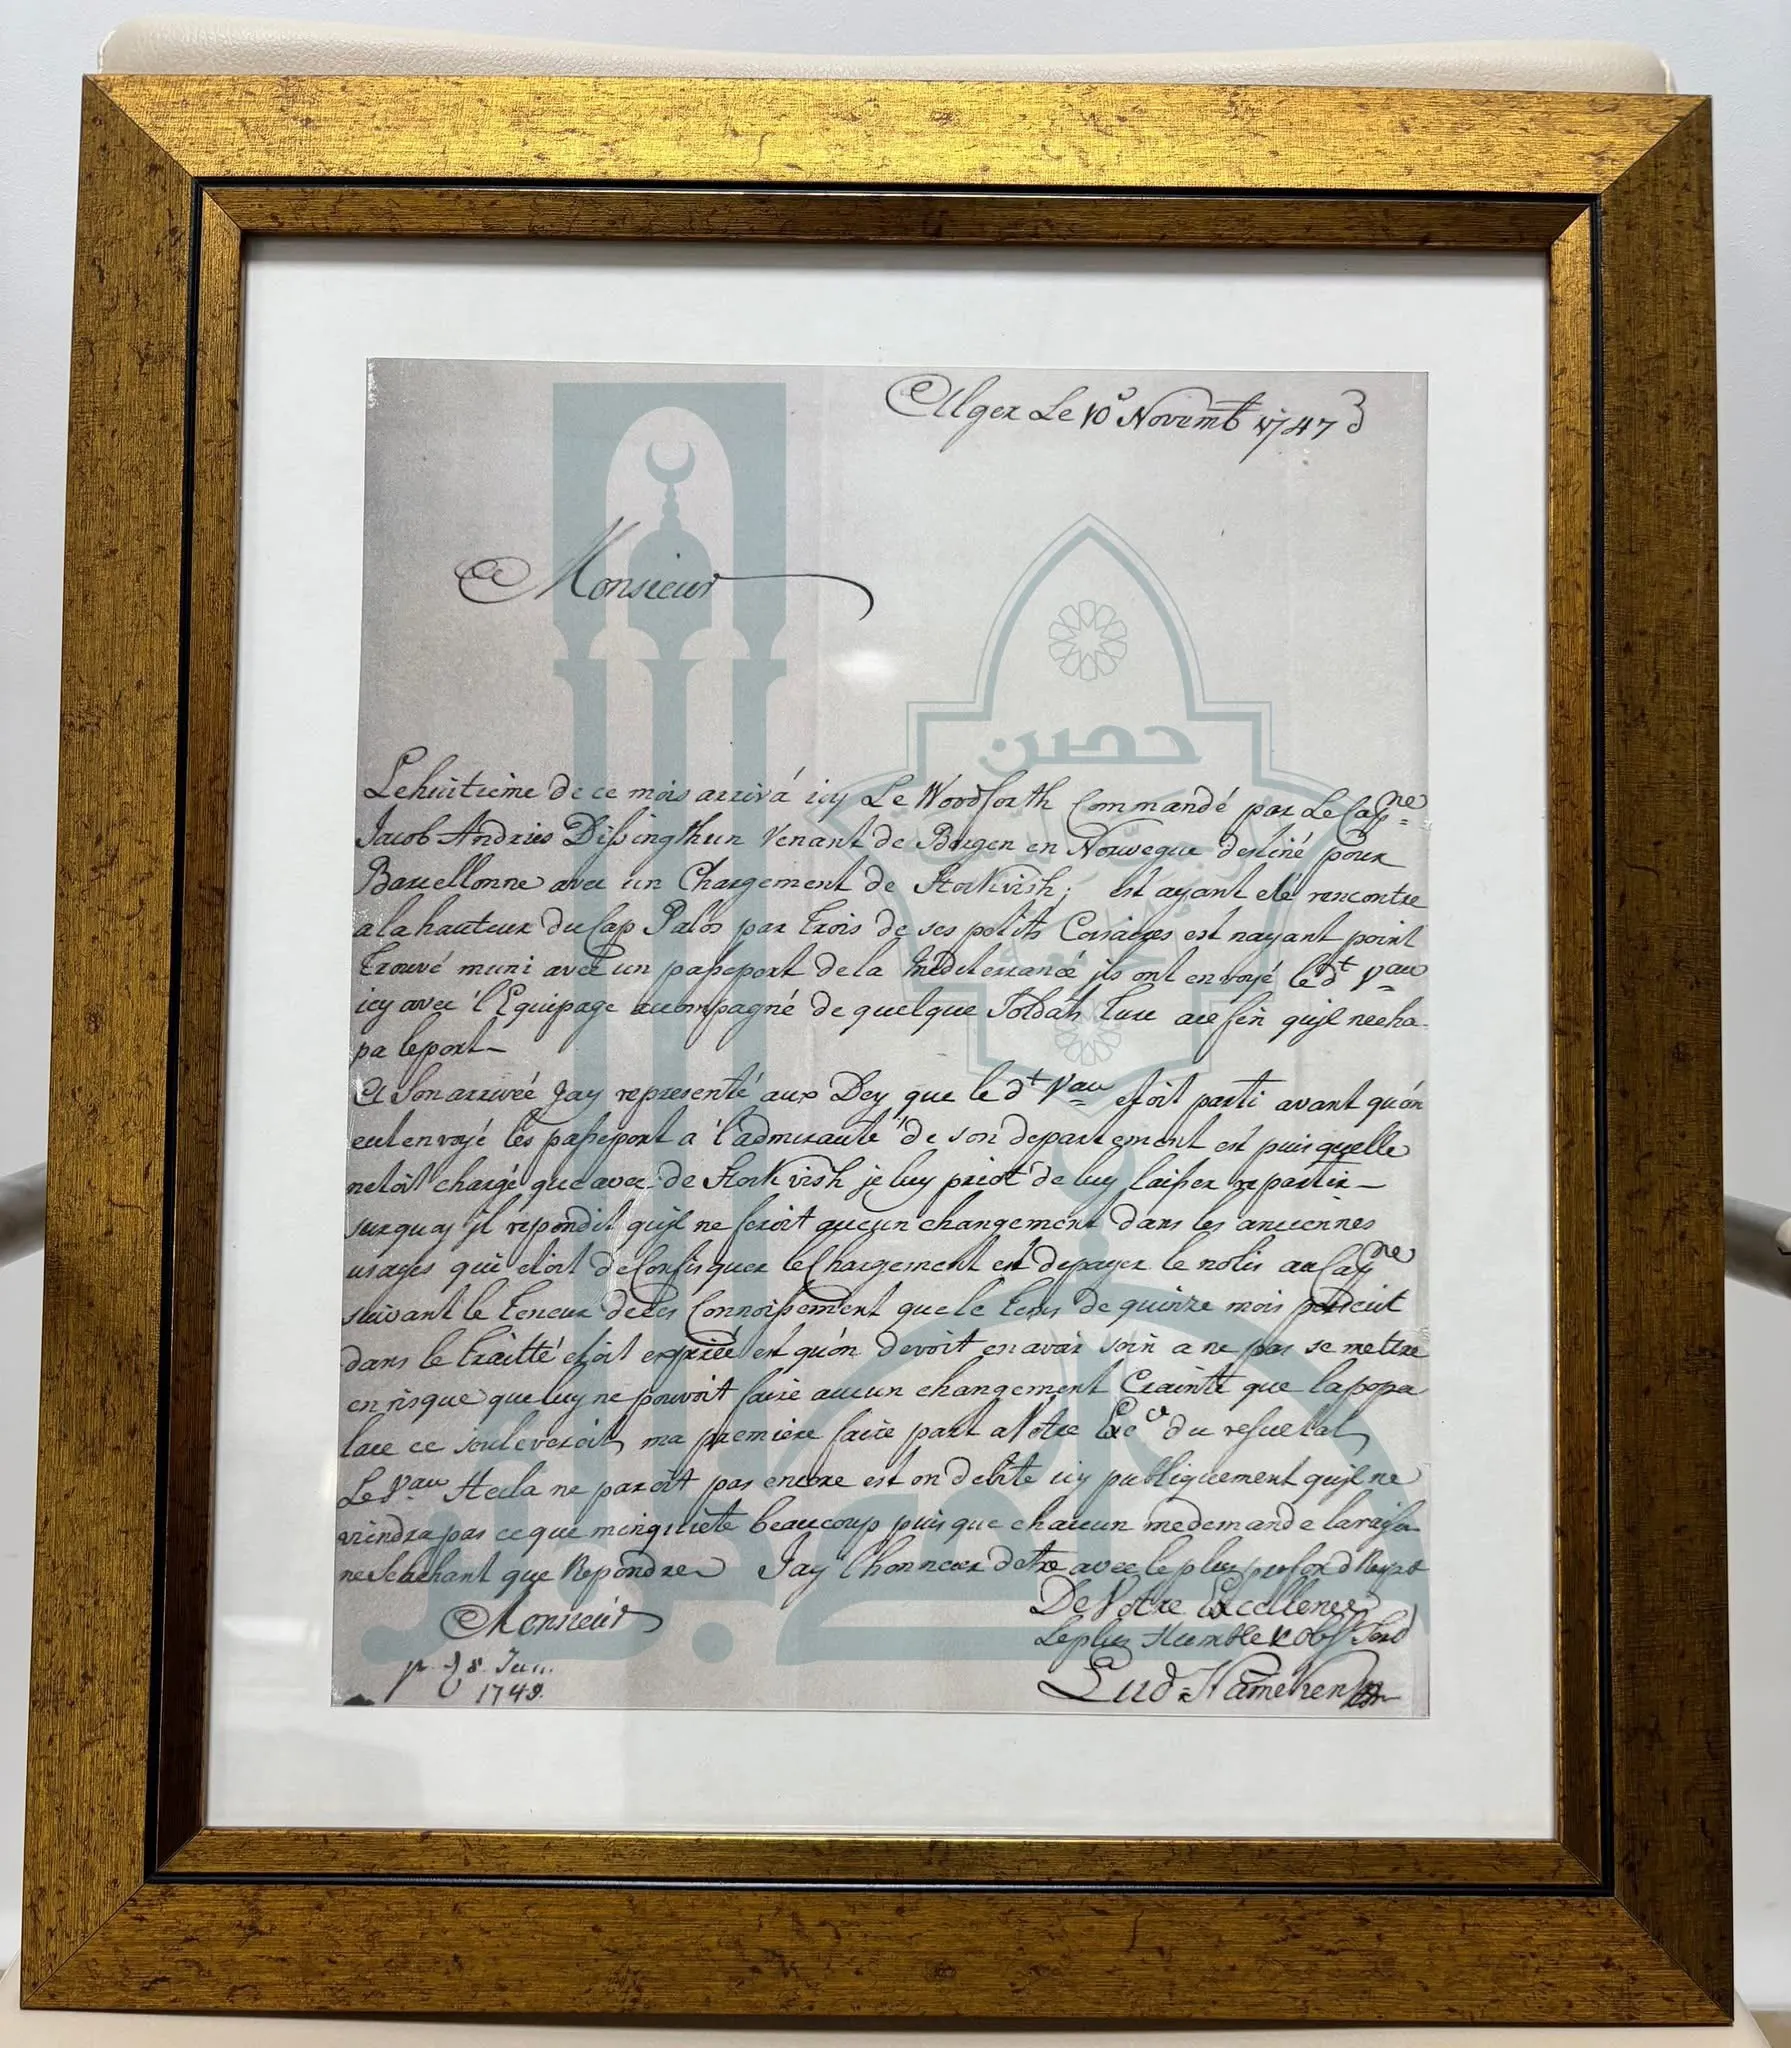 Alger Le 10e Novemb 1747
Monsieur
حصين
Le huitieme de ce mois arrivá icy Le Woodforth Commandé par Le Capne
Jacob Andries venant de Bergen en Norwegue destiné pour
Barcellonne avec un Chargement de Stokvish; est ayant eté rencontre
a la hauteur du Cap Palos par trois de ses petits Corsaires est nayant point
trouvé muni avec un passeport de la mediterranée ils ont envoyé le dt Vau
icy avec l'Equipage accompagné de quelque Soldats Turc
pa le port
A Son arrivée Jay representé aux Dey que le dt Vau etoit parti avant qu'on
eut envoyé les passeport a l'admirauté de son departement est puis quelle
netoit chargé que avec de Stokvish je luy priot de luy laisser repartir
surquoy il repondit quil ne feroit aucun changement dans les anciennes
usages qui etoit de Confisquer le Chargement est de payer le nolis au Capne
suivant le teneur de les Connoissement que le tems de quinze mois
dans le traitté etoit expriée est qu'on devoit en avair soin a ne pas se mettre
en risque que luy ne pouvoit faire aucun changement Crainte que la popu
lace ce souleveroit, ma premiere faire part a Votre Exce du resultat,
Le Vau Hecla ne paroit pas encore est on debite icy publiquement quil ne
viendra pas ce que minquiete beaucoup puis que chacun me demande la raison
ne Scachant que Repondre Jay l'honneur detre avec le plus profond Respet
De Votre Excellence
Le plus Humble & Obst Serv
Monsieur
Lud: Hameken
8. Jan.
1748.